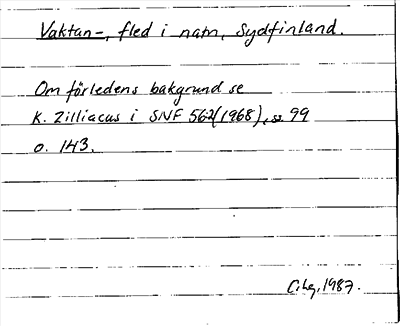 Vaktan-, fled i namn, Sydfinland.
Om förledens bakgrund se
K. Zilliacus i SNF 562(1968), s. 99
o. 143.
1987.